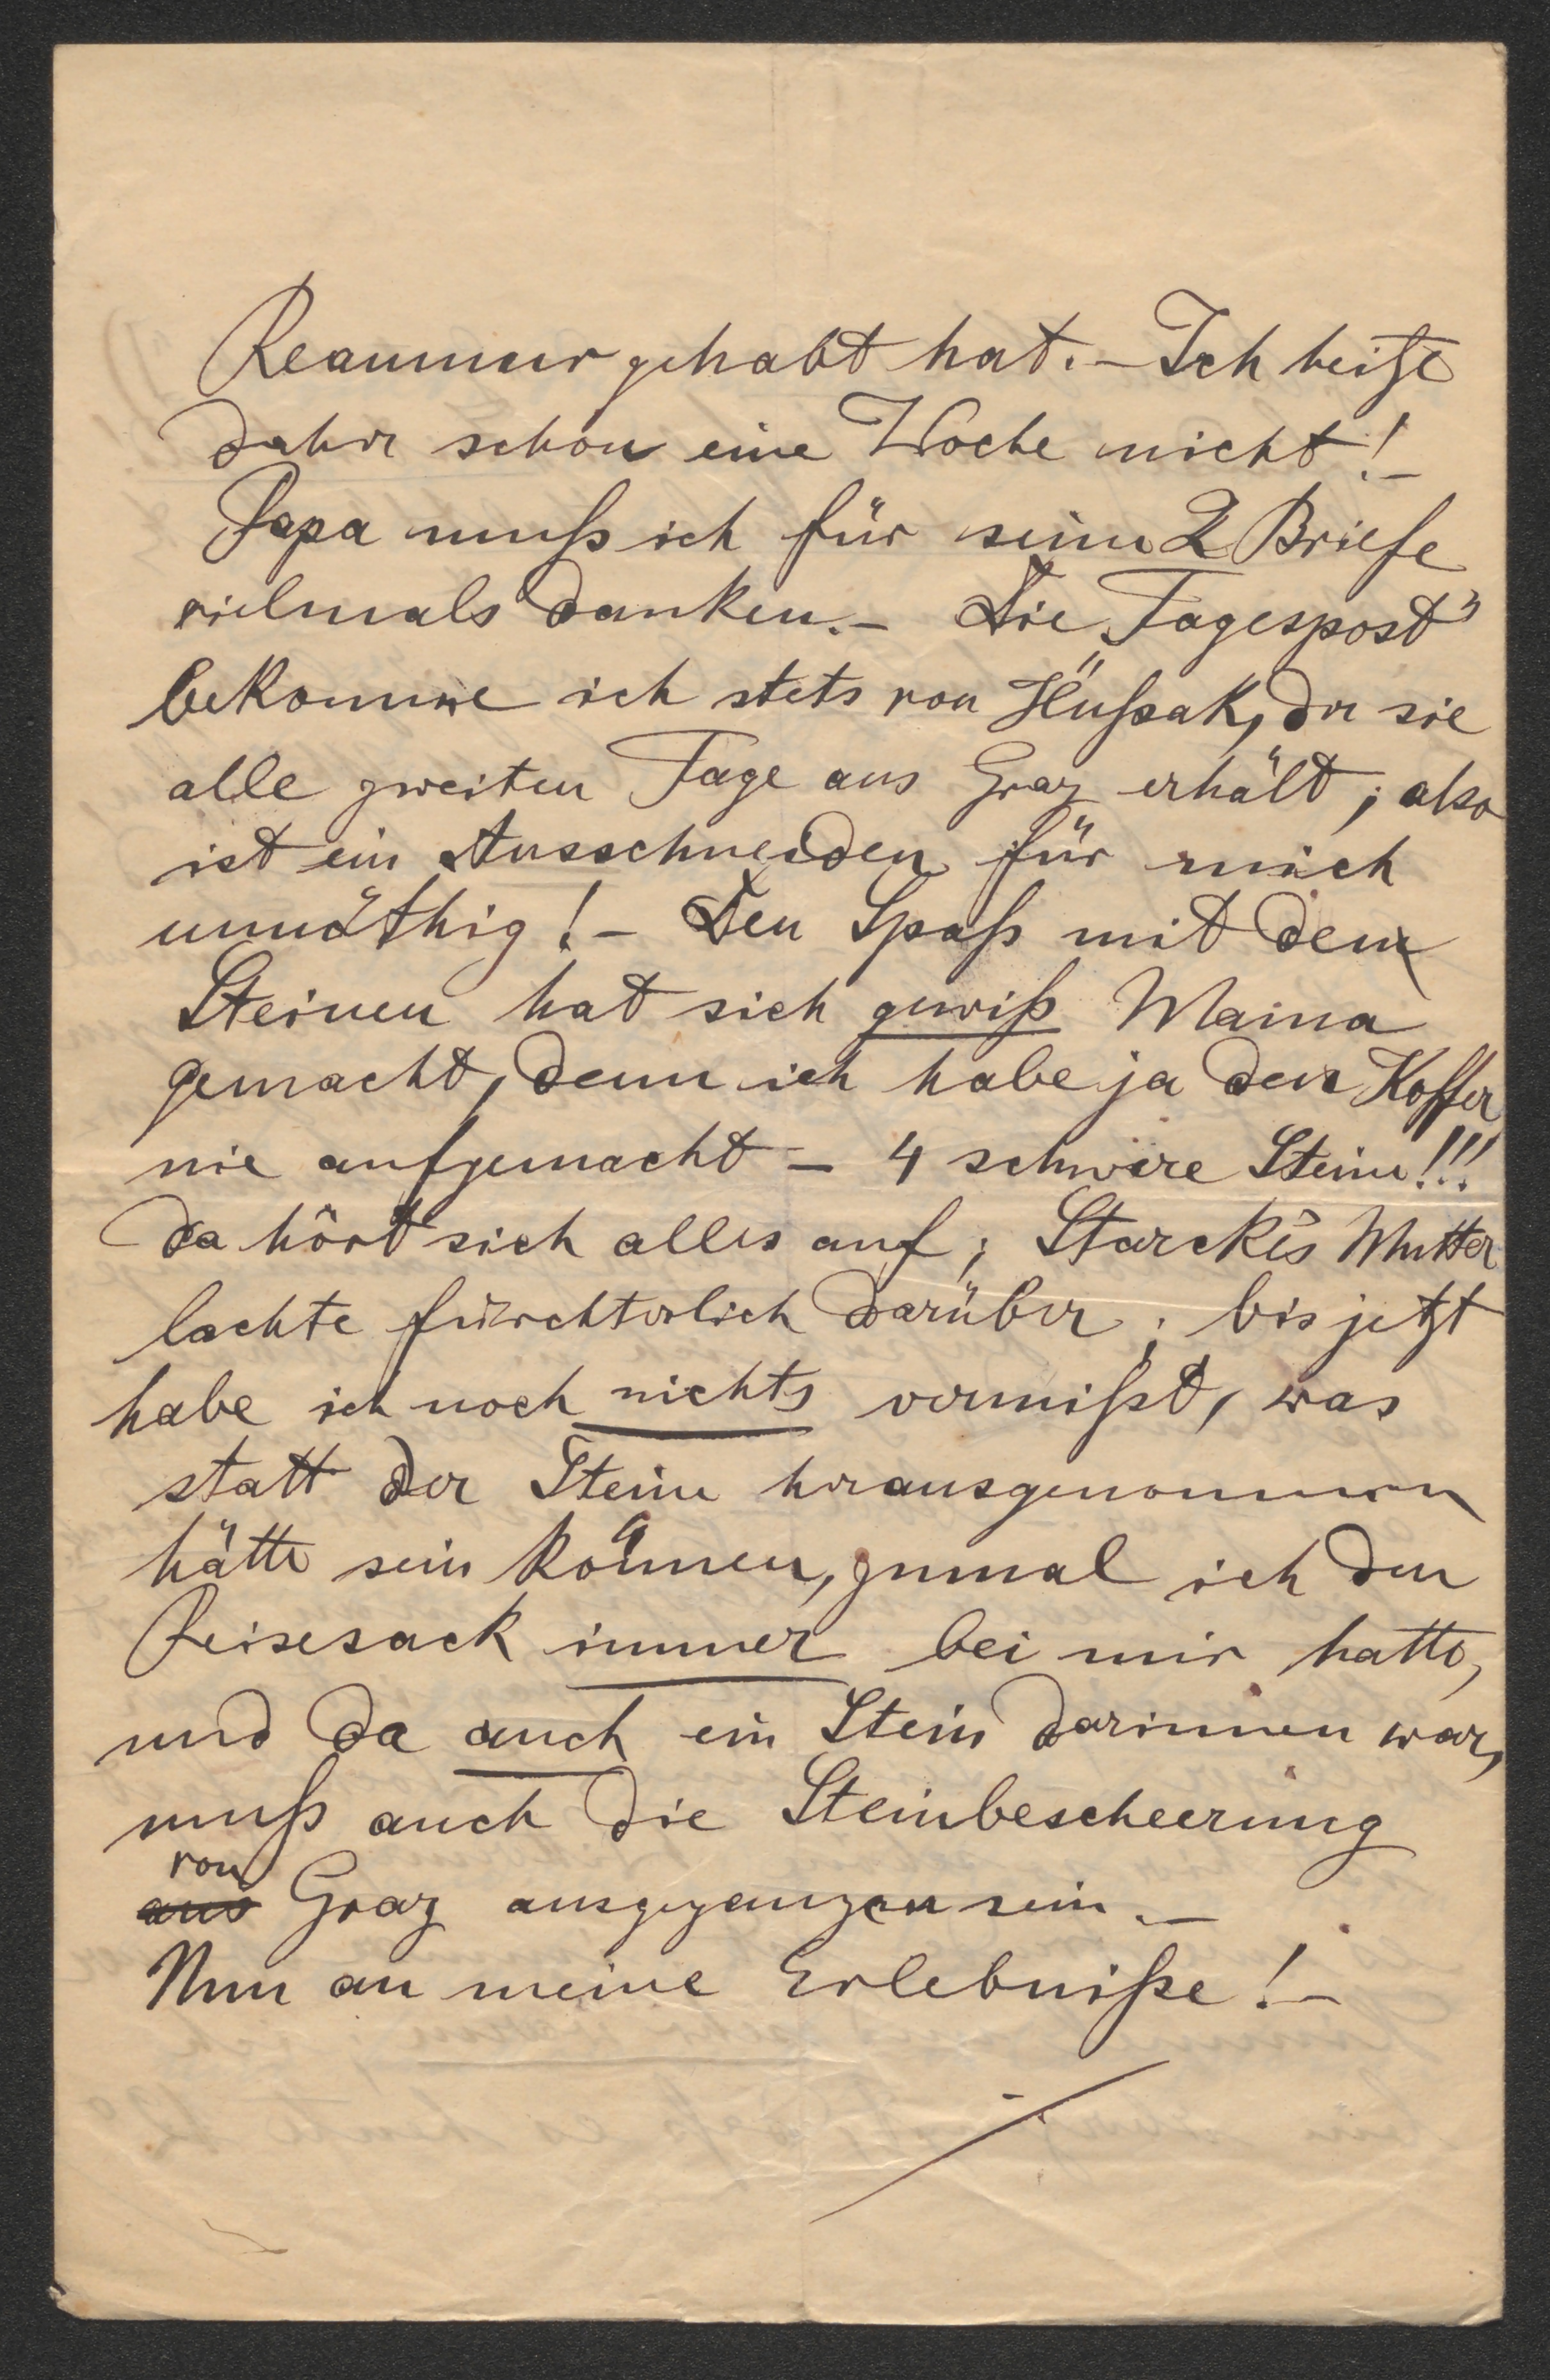 Reaumur gehabt hat. – Ich heitze
daher schon eine Woche nicht! –
Papa muß ich für seine 2 Briefe
vielmals danken. – Die „Tagespost“
bekomme ich stets von Hußak, der sie
alle zweiten Tage aus Graz erhält; also
ist ein Ausschneiden für mich
unnöthig! – Den Spaß mit den
Steinen hat sich gewiß Mama
gemacht, denn ich habe ja den Koffer
nie aufgemacht – 4 schwere Steine!!!
Da hört sich alles auf; Starcke's Mutter
lachte fürchterlich darüber; bis jetzt
habe ich noch nichts vermißt, was
statt der Steine herausgenommen
hätte sein können, zumal ich den
Reisesack immer bei mir hatte,
und da auch ein Stein darinnen war,
muß auch die Steinbescheerung
von
aus Graz ausgegangen sein. –
Nun an meine Erlebniße! –